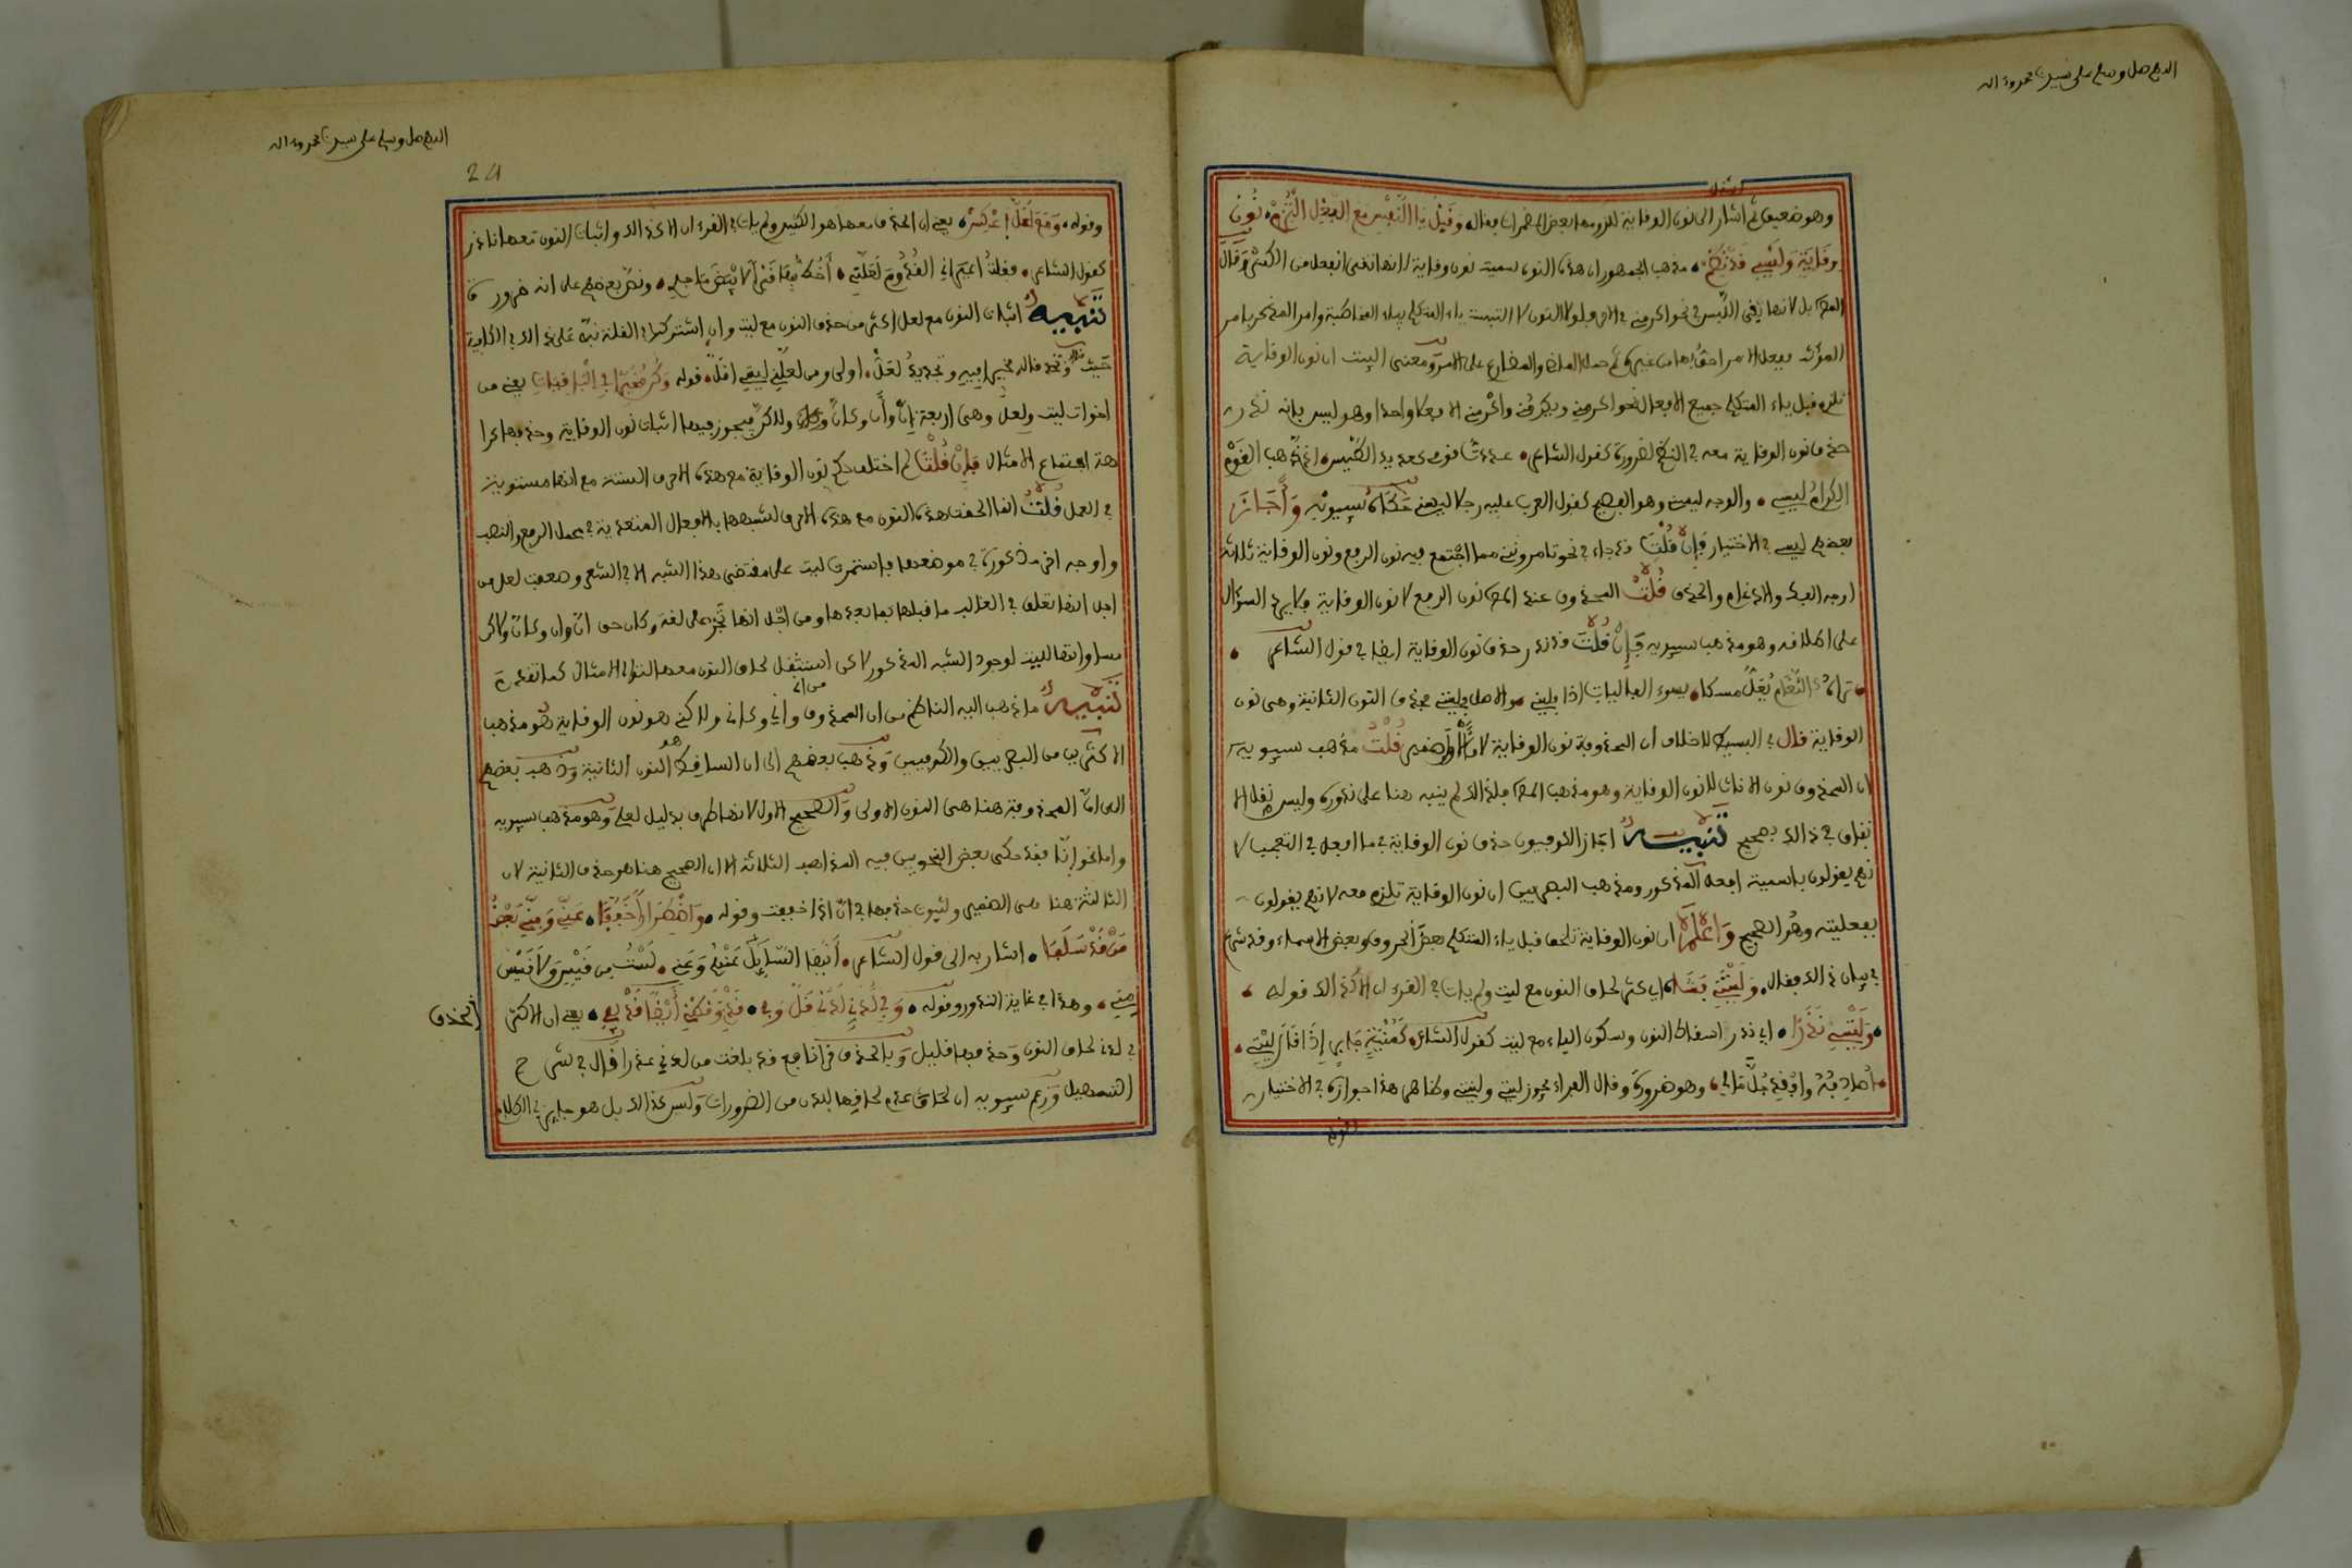 اللهم صل وسلم على سيدنا محمد وءاله
وهو ضعيف ثم اشار الى نون الوقاية للزومها بعض المضمرات فقال وَقَبْلَ يَا النَّفْسِ مَعَ الْفِعْلِ الْتُزِمْ نُونُ
وِقَايَةٍ وَلَيْسِي قَدْ نُظِمْ مذهب الجمهور ان هذه النون سميت نون وقاية لانها تقي الفعل من الكسر وَقَالَ
المص بل لانها تقي اللبس في نحو اكرمني في الامر فلولا النون لالتبست ياء المتكلم بياء المخاطبة وامر المذكر بامر
المؤنث ففعل الامر احق بها من غيره ثم حمل الماضي والمضارع على الامر ومعنى البيت ان نون الوقاية
تلزم قبل ياء المتكلم جميع الافعال نحو اكرمني ويكرمني واكرمني الا فعلا واحدا وهو ليس فانه ندر
حذف نون الوقاية معه في النظم لضرورة كقول الشاعر عددت قومي كعديد الطيس اذ ذهب القوم
الكرام ليسي والوجه ليسني وهو الفصيح كقول العرب عليه رجلا ليسني حكاه سيبويه وَأَجَازَ
بعضهم ليسي في الاختيار فَإِنْ قُلْتَ قد جاء في نحو تامروني مما اجتمع فيه نون الرفع ونون الوقاية ثلاثة
اوجه الفك والادغام والحذف قُلْتُ المحذوف عند المص نون الرفع لا نون الوقاية فلا يرد السؤال
على اطلاقه وهو مذهب سيبويه فَإِنْ قُلْتَ قد ندر حذف نون الوقاية ايضا في قول الشاعر
تراه كالثغام يعل مسكا يسوء الفاليات اذا فليني والاصل فلينني فحذف النون الثانية وهي نون
الوقاية قال في البسيط لا خلاف ان المحذوفة نون الوقاية لان الاولى ضمير قُلْتُ مذهب سيبويه
ان المحذوف نون الاناث لا نون الوقاية وهو مذهب المص فلذلك لم ينبه هنا على ندوره وليس نقل الا
تفاق في ذلك بصحيح تَنْبِيهٌ اجاز الكوفيون حذف نون الوقاية في ما افعل في التعجب لا
نهم يقولون باسمية افعل المذكور ومذهب البصريين ان نون الوقاية تلزم معه لانهم يقولون
بفعليته وهو الصحيح وَاعْلَمْ ان نون الوقاية تلحق قبل ياء المتكلم بعض الحروف وبعض الاسماء وقد شرع
في بيان ذلك فقال وَلَيْتَنِي فَشَا اي كثر لحاق النون مع ليت ولم يات في القرءان الا كذلك قوله
وَلَيْتِي نَدَرَا اي ندر اسقاط النون وسكون الياء مع ليت كقول الشاعر كَمُنْيَةِ جَابِرٍ إِذْ قَالَ لَيْتِي
أصادفه وأفقد جل مالي وهو ضرورة وقال الفراء يجوز ليتي وليتني وظاهر هذا جوازه في الاختيار
اللهم صل وسلم على سيدنا محمد وءاله
24
وقوله وَمَعْ لَعَلَّ اعْكِسْ يعني ان الحذف معها هو الكثير ولم يات في القرءان الا كذلك واثبات النون معها نادر
كقول الشاعر فقلت اعيراني القدوم لعلني أخط بها قبرا لأبيض ماجد ونص بعضهم على انه ضرورة
تَنْبِيهٌ اثبات النون مع لعل اكثر من حذف النون مع ليت وان اشتركا في القلة نبه على ذلك في الكافية
اخوات ليت ولعل وهي اربعة إن وأن وكأن ولكن فيجوز فيها اثبات نون الوقاية وحذفها كرا
هة اجتماع الامثال فَإِنْ قُلْتَ لم اختلف حكم نون الوقاية مع هذه الاحرف الستة مع انها مستوية
في العمل قُلْتُ انما الحقت هذه النون مع هذه الاحرف لشبهها بالافعال المتعدية في عمل الرفع والنصب
اجل انها تعلق في الغالب ما قبلها بما بعدها ومن اجل انها تجر على لغة وكان حق ان وان وكان ولكن
مساواتها لليت لوجود الشبه المذكور لاكن استثقل لحاق النون معها لتوالي الامثال كما تقدم
تَنْبِيهٌ ما ذهب اليه الناظم من ان المحذوف من اني واني وكاني ولاكني هو نون الوقاية هو مذهب
الاكثرين من البصريين والكوفيين وذهب بعضهم الى ان الساقط هو النون الثانية وذهب بعضهم
الى ان المحذوفة هنا هي النون الاولى والصحيح الاول لانها طرف بدليل لعلي وهو مذهب سيبويه
واما نحو إنا فقد حكى بعض النحويين فيه المذاهب الثلاثة الا ان الصحيح هنا هو حذف الثانية لان
الثالثة هنا هي الضمير ولثبوت حذفها في ان اذا خففت وقوله وَاضْطِرَارًا خَفَّفَا عَنِّي وَمِنِّي بَعْضُ
مَنْ قَدْ سَلَفَا اشار به الى قول الشاعر أَيُّهَا السَّائِلُ عَنْهُمْ وَعَنِي لَسْتُ مِنْ قَيْسٍ وَلَا قَيْسُ
مِنِي وهذا في غاية الندور وقوله وَفِي لَدُنِّي لَدُنِي قَلَّ وَفِي قَدْنِي وَقَطْنِي أَيْضًا قَدْ يَفِي يعني ان الاكثر
الحذف
في لدني لحاق النون وحذفها قليل وبالحذف قرأ نافع قد بلغت من لدني عذرا قال في شرح
التسهيل وزعم سيبويه ان عدم لحاقها للدن من الضرورات وليس كذلك بل هو جايز في الكلام